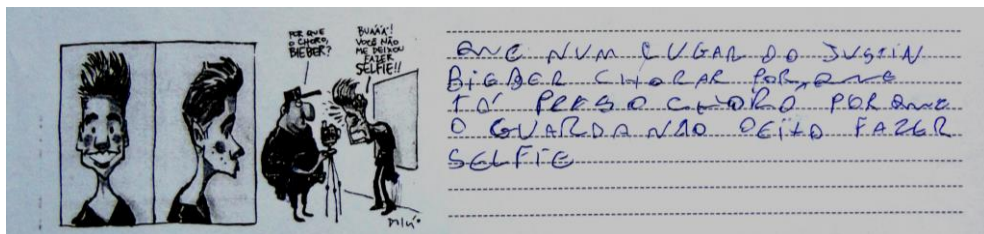 POR QUE
O CHORO,
BIEBER?
BUÁÁÁ!
VOCÊ NÃO
ME DEIXOU
FAZER
SELFIE!!
QUE NUM LUGAR DO JUSTIN
BIEBER CHORAR POR, QUE
TÁ PRESO CHORO POR QUE
O GUARDA NÃO DEIXO FAZER
SELFIE